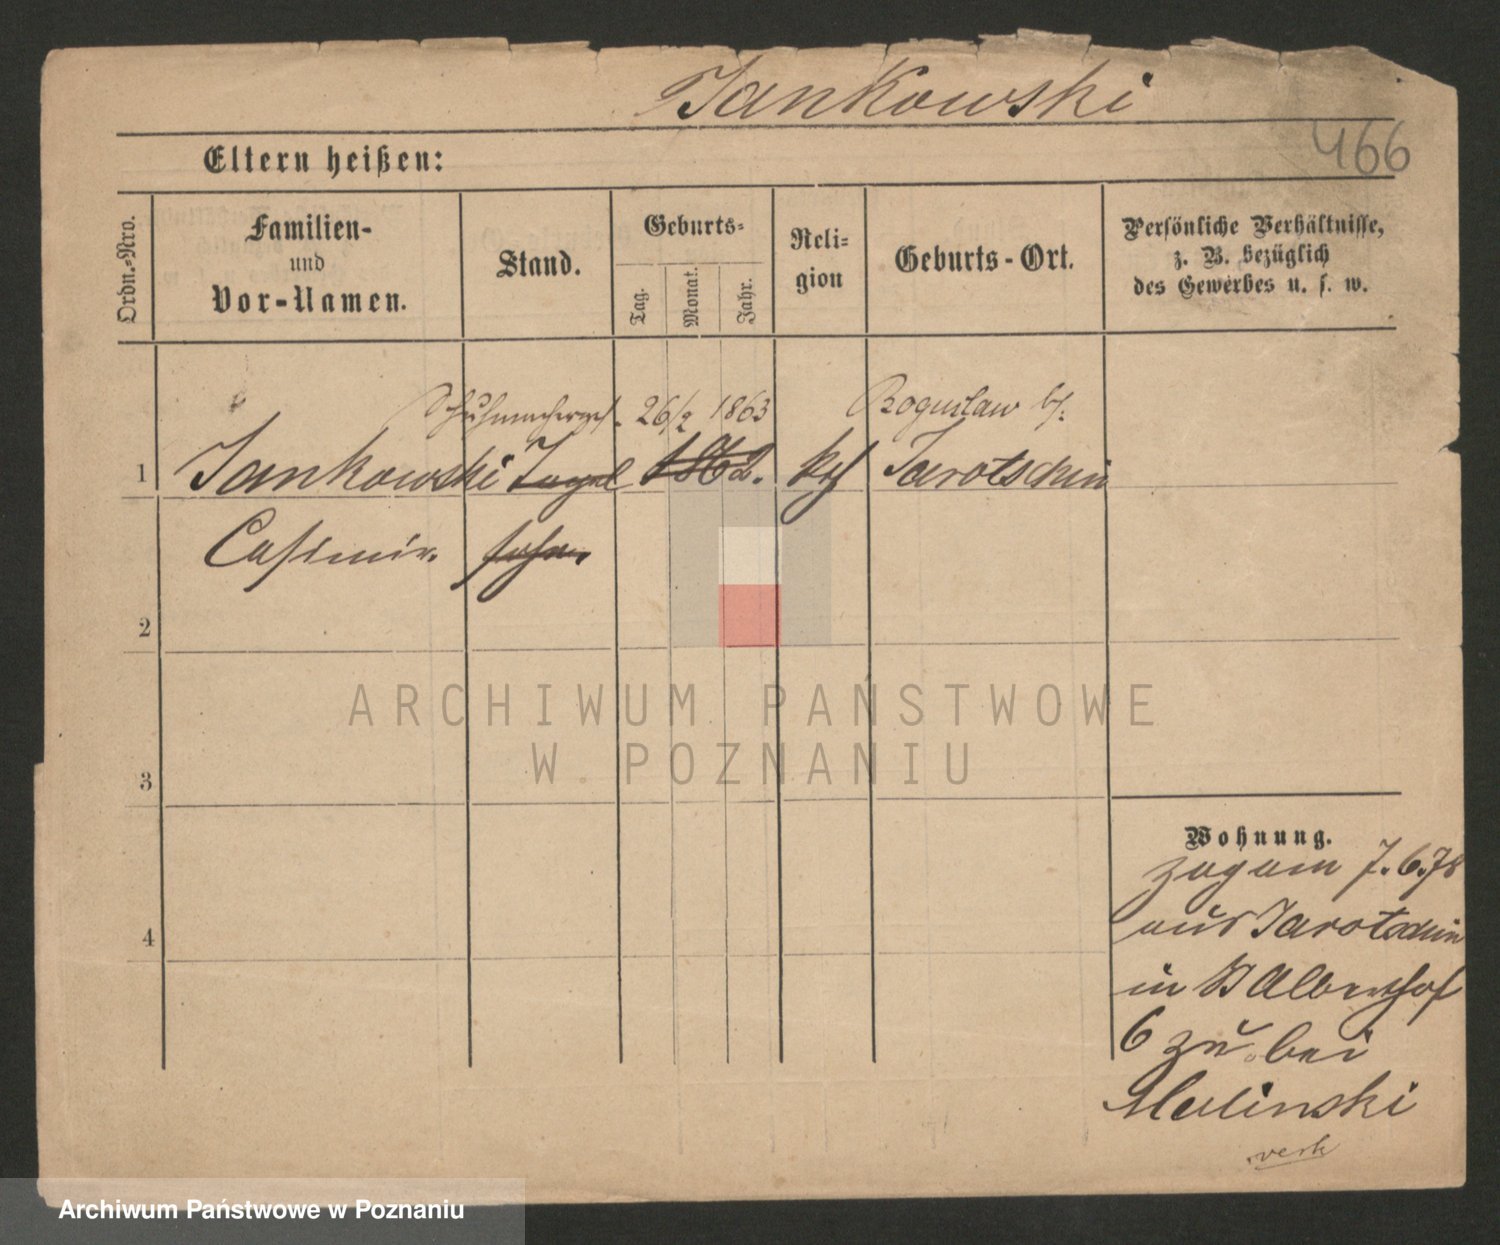 Jankowski
466
Eltern heißen:
Ordn.-Nro.
Familien-
und
Vor-Namen.
Stand.
Geburts-
Tag.
Monat.
Jahr.
Reli-
gion
Geburts-Ort.
Persönliche Verhältnisse,
z. B. bezüglich
des Gewerbes u. s. w.
Schuhmachergs. 26/2 1863 Boguslaw b/.
1 Jankowski 1862. kth Jarotschin
Casimir.
2
3
4
Wohnung.
zog am 7.6.78
aus Jarotschin
in St Alberthof
6 zu bei
Malinski
verh
ARCHIWUM PAŃSTWOWE
W POZNANIU
Archiwum Państwowe w Poznaniu